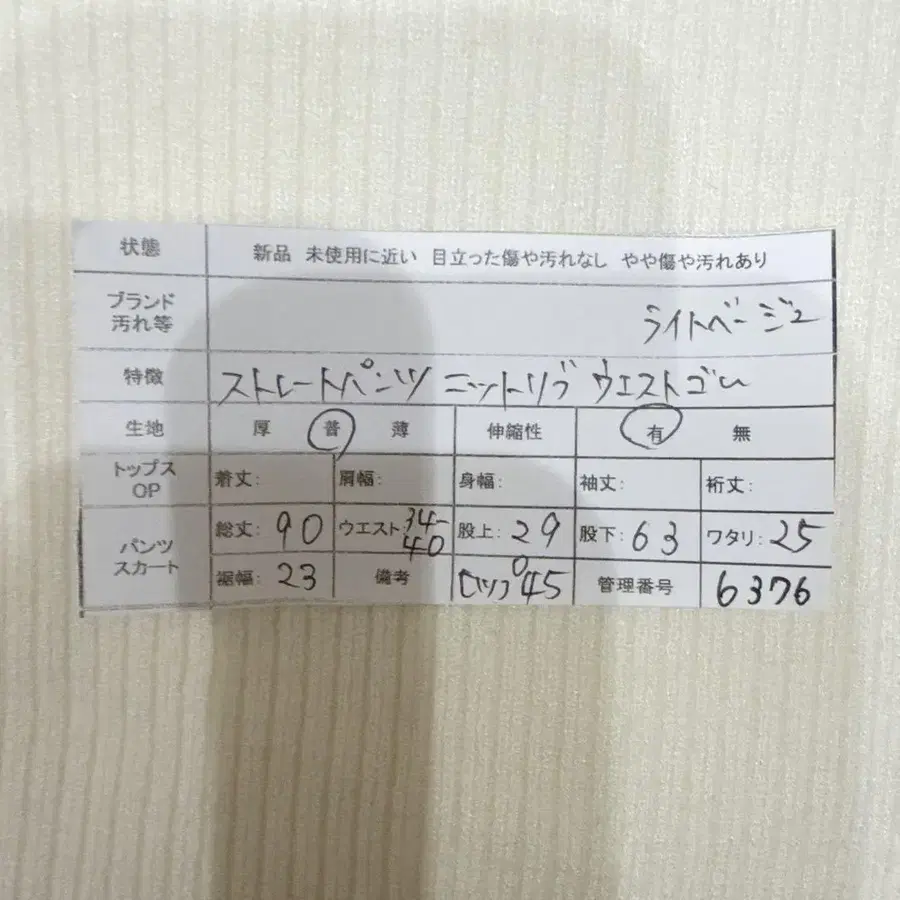 状態 新品 未使用に近い 目立った傷や汚れなし やや傷や汚れあり
ブランド
汚れ等 ライトベージュ
特徴 ストレートパンツ ニットリブ ウエストゴム
生地 厚 普 薄 伸縮性 有 無
トップス
OP 着丈: 肩幅: 身幅: 袖丈: 裄丈:
パンツ
スカート 総丈: 90 ウエスト: 34-40 股上: 29 股下: 63 ワタリ: 25
裾幅: 23 備考 ヒップ 45 管理番号 6376